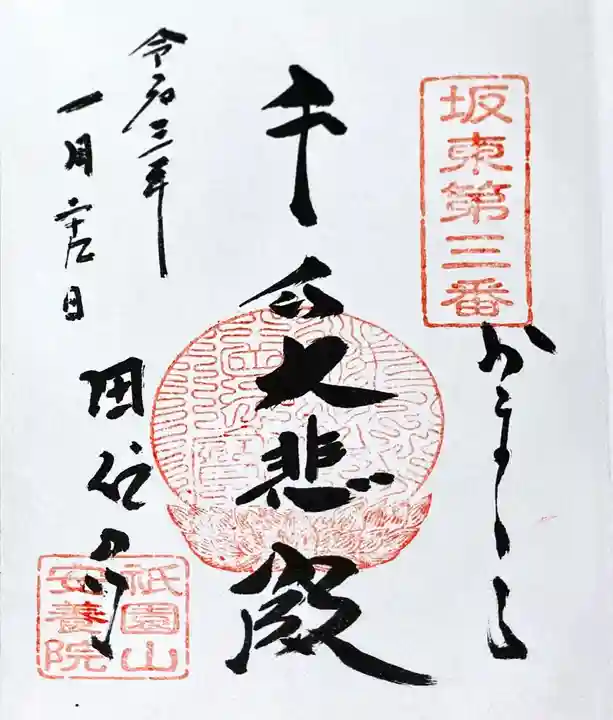 坂東第三番
千手大悲殿
令和三年
一月二十九日
田代
祇園山
安養院